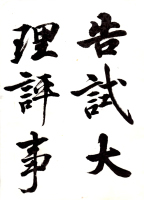 告試大
理評事